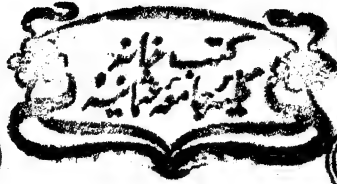 کتب خانہ
کلیہ جامعہ عثمانیہ